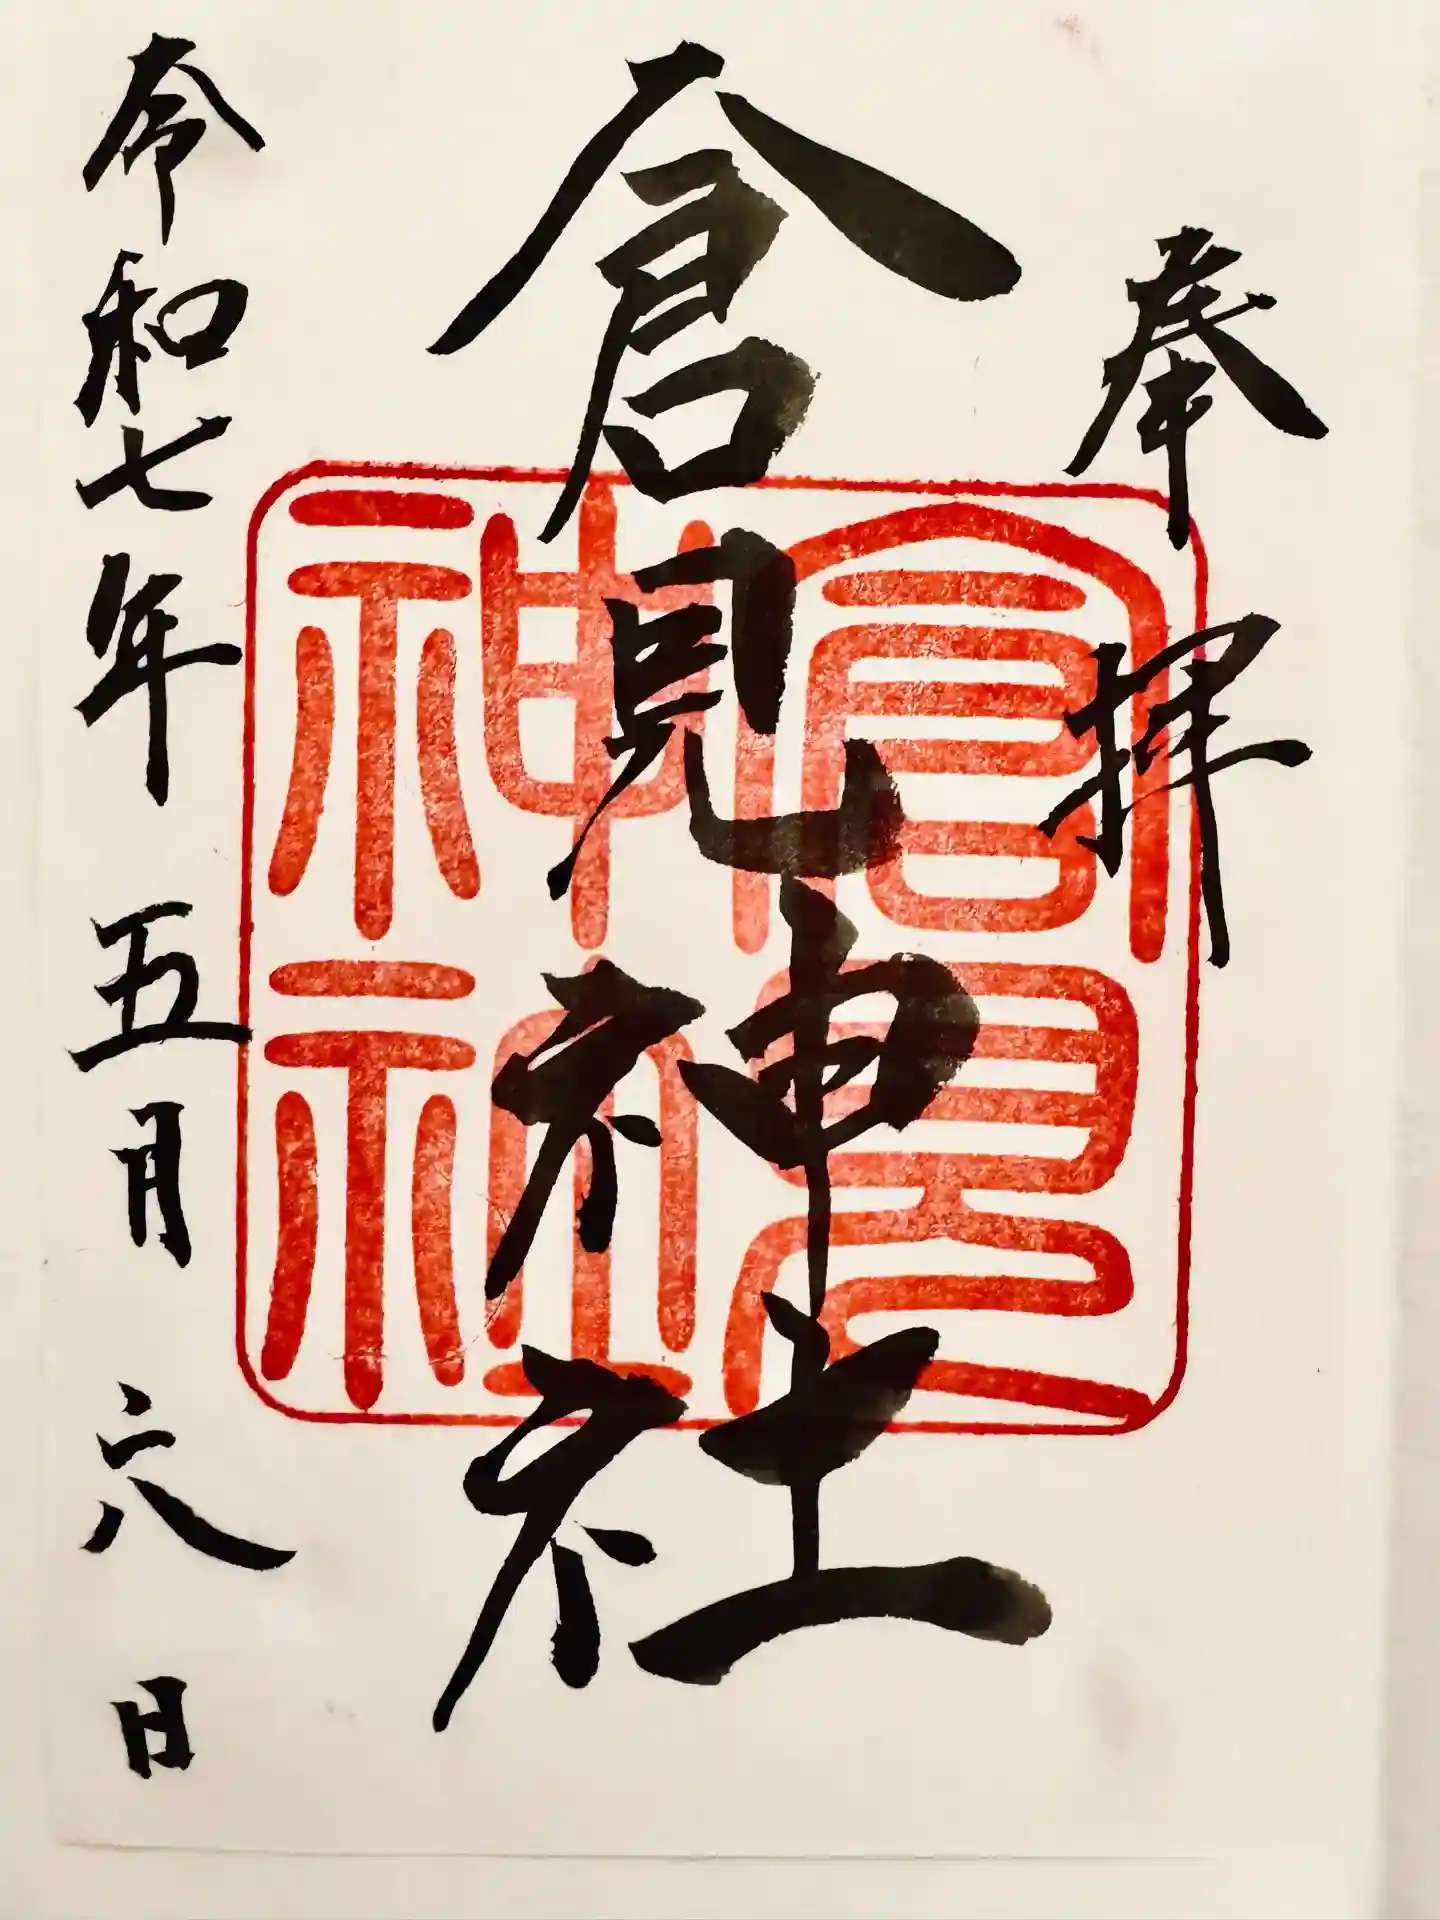 奉拝
倉見神社
倉見
神社
令和七年五月六日